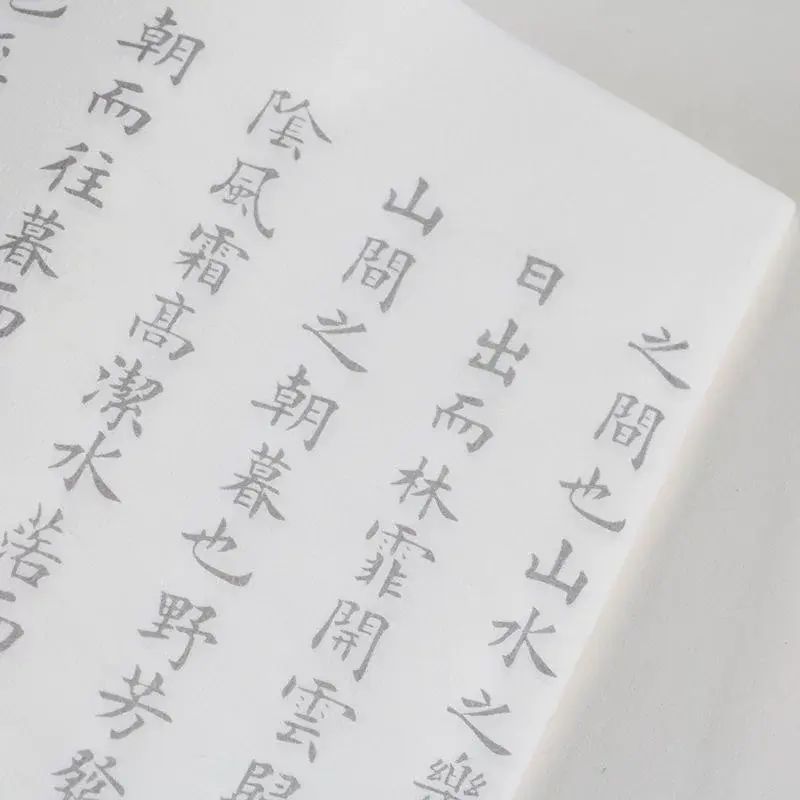 之間也山水之樂
日出而林霏開雲歸
山間之朝暮也野芳發
陰風霜髙潔水落而
朝而往暮而
也